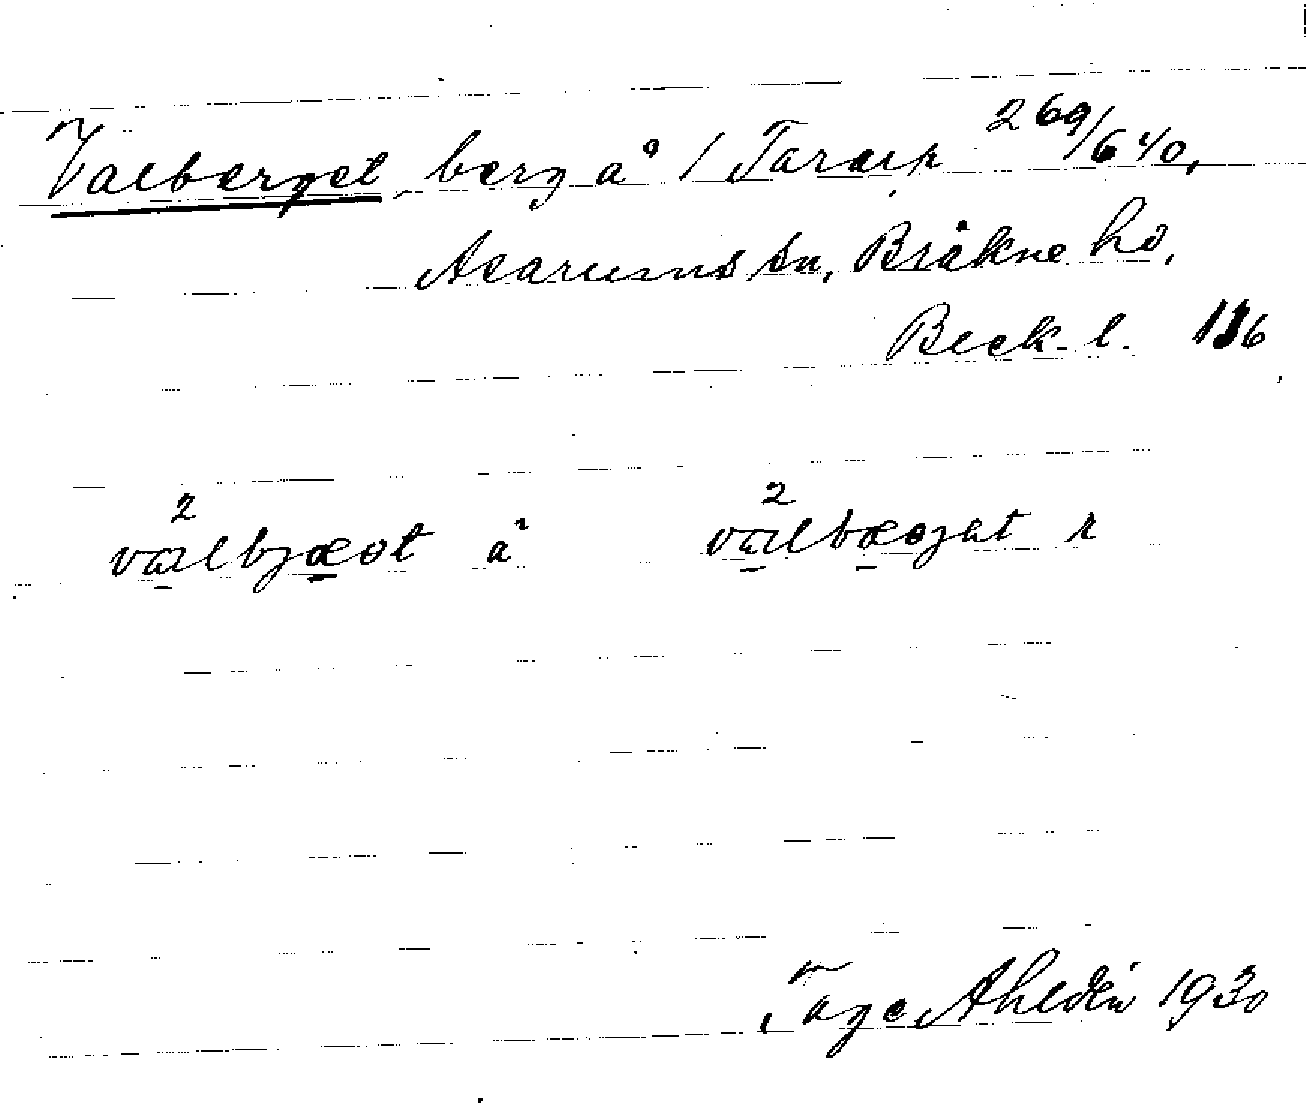 Valberget, berg å 1 Tararp 269/640,
Asarums sn, Bräkne hd,
Bleck. l. 116
2 valbjæot a² 2 valbæojet r
Tage Ahldén 1930